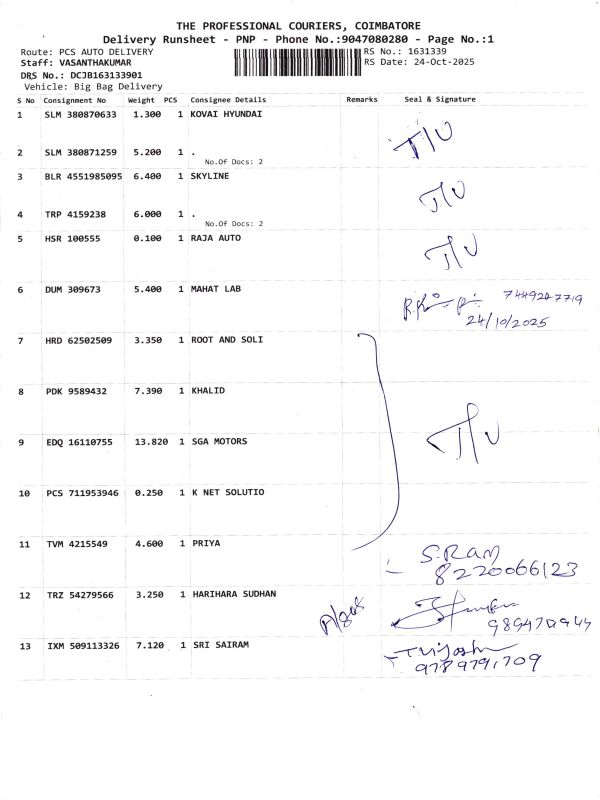 THE PROFESSIONAL COURIERS, COIMBATORE
Delivery Runsheet - PNP - Phone No.:9047080280 - Page No.:1
Route: PCS AUTO DELIVERY RS No.: 1631339
Staff: VASANTHAKUMAR RS Date: 24-Oct-2025
DRS No.: DCJB163133901
Vehicle: Big Bag Delivery
S No Consignment No Weight PCS Consignee Details Remarks Seal & Signature
1 SLM 380870633 1.300 1 KOVAI HYUNDAI
T/U
2 SLM 380871259 5.200 1 .
No.Of Docs: 2
3 BLR 4551985095 6.400 1 SKYLINE
T/U
4 TRP 4159238 6.000 1 .
No.Of Docs: 2
5 HSR 100555 0.100 1 RAJA AUTO
T/U
6 DUM 309673 5.400 1 MAHAT LAB
24/10/2025
7 HRD 62502509 3.350 1 ROOT AND SOLI
8 PDK 9589432 7.390 1 KHALID
T/U
9 EDQ 16110755 13.820 1 SGA MOTORS
10 PCS 711953946 0.250 1 K NET SOLUTIO
11 TVM 4215549 4.600 1 PRIYA
S.RAM
8220066123
12 TRZ 54279566 3.250 1 HARIHARA SUDHAN
13 IXM 509113326 7.120 1 SRI SAIRAM
9789791709